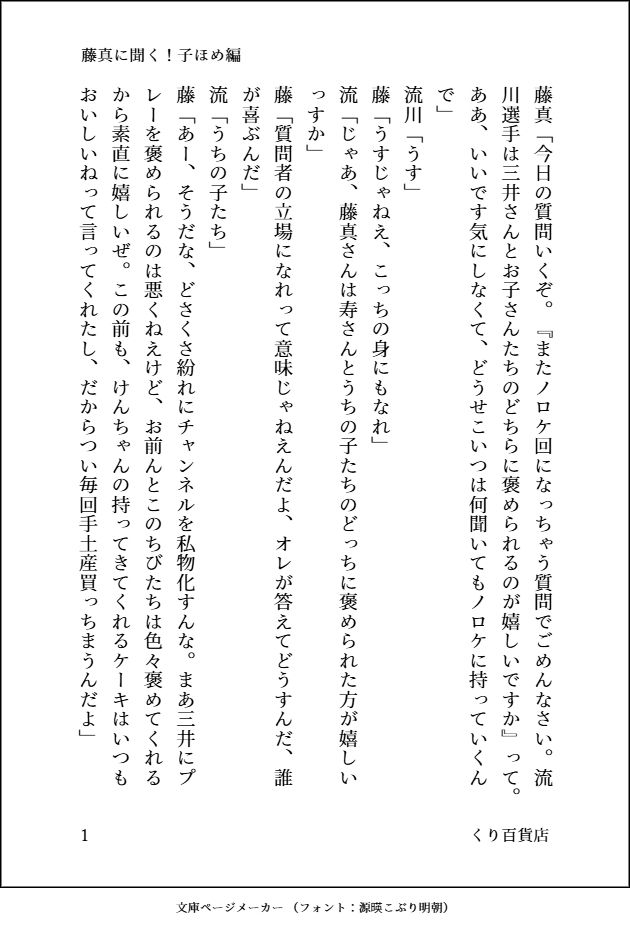 藤真に聞く！子ほめ編
藤真「今日の質問いくぞ。『またノロケ回になっちゃう質問でごめんなさい。流
川選手は三井さんとお子さんたちのどちらに褒められるのが嬉しいですか』って。
ああ、いいです気にしなくて、どうせこいつは何聞いてもノロケに持っていくん
で」
流川「うす」
藤「うすじゃねえ、こっちの身にもなれ」
流「じゃあ、藤真さんは寿さんとうちの子たちのどっちに褒められた方が嬉しい
っすか」
藤「質問者の立場になれって意味じゃねえんだよ、オレが答えてどうすんだ、誰
が喜ぶんだ」
流「うちの子たち」
藤「あー、そうだな、どさくさ紛れにチャンネルを私物化すんな。まあ三井にプ
レーを褒められるのは悪くねえけど、お前んとこのちびたちは色々褒めてくれる
から素直に嬉しいぜ。この前も、けんちゃんの持ってきてくれるケーキはいつも
おいしいねって言ってくれたし、だからつい毎回手土産買っちまうんだよ」
くり百貨店
1
文庫ページメーカー（フォント：源暎こぶり明朝）